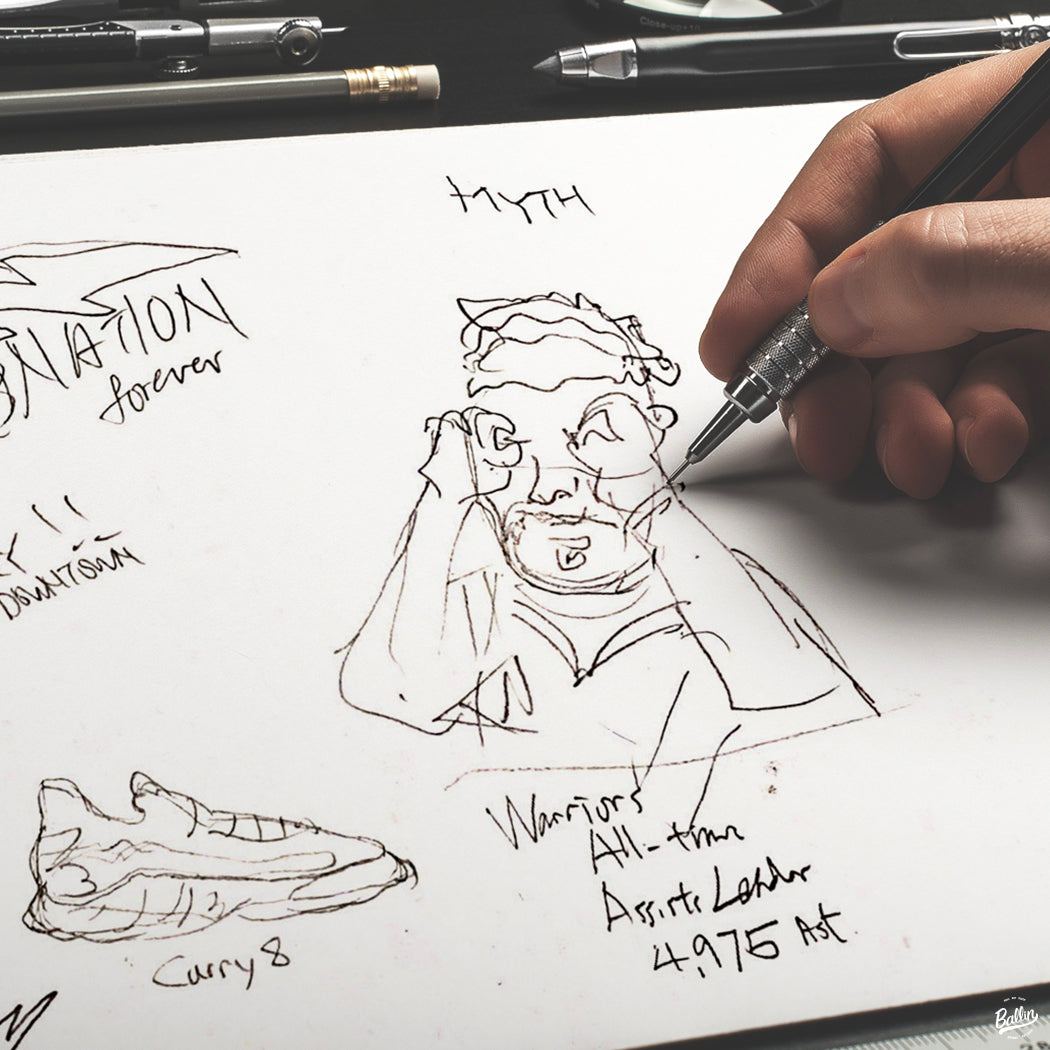 Close-up+10
MYTH
NATION
forever
Y !!
DOWNTOWN
Warriors
All-time
Assists Leader
4,975 Ast.
Curry 8
Ballin